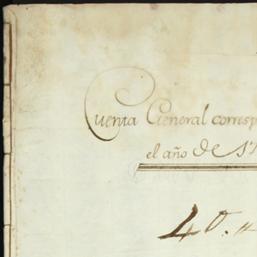 Cuenta General corresp
el año de
40.